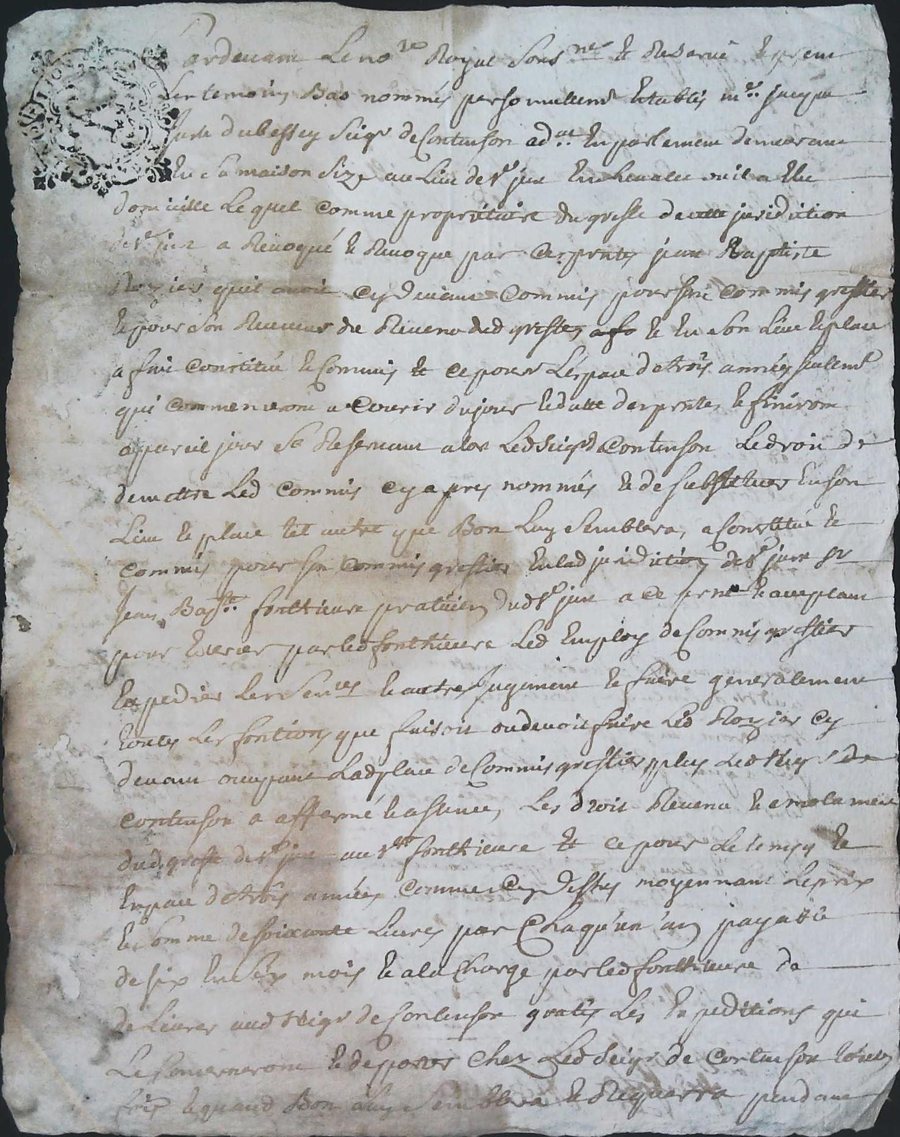 Pardevant le no.re Royal sous.né et Reservé et presen
les temoins Bas nommés personnellem.t Establis m.re jacque
dubessey Seig.r de Contenson ad.at En parlement demeurant
En sa maison size au Lieu de s.t jus En chevalet ou il a Elu
domicille Lequel comme propriétaire du greffe de cette juridiction
de s.t just a Revoqué et Revoque par ces p.ntes jean Baptiste
Rozier quil avoit cy devant commis pour son commis greffier
et pour son Receveur de Revenu dud greffe, et En son Lieu et place
a fait constitué et Commis et ce pour L'espace de trois années seulem.t
qui commenceront a Courir du jour et datte des p.ntes et finiront
a pareil jour se Reservant alors Led Seig.r de Contenson Le droit de
demettre Led commis cy apres nommés et de substituer En son
Lieu et place tel autre que Bon Luy semblera, a Constitué et
commis pour son commis greffier En lad juridiction de s.t just s.r
jean Bap.te fonthieure praticien dud s.t just a ce p.nt et acceptant
pour Exercer par led fonthieure Led Employ de Commis greffier
Expedier les sen.ces et autres jugements et faire generalement
toutes Les fontions que faisoit ou devoit faire Led Rozier cy
devant occupant Lad place de Commis greffier plus Led Seig.r de
contenson a affermé Les droit Revenu et emolument
dud greffe de s.t just aud fonthieure et ce pour Le temps et
Espace de trois années comme Cy dessus moyennant Le prix
et somme de soixante Livres par Chaqu'un an payable
de six En six mois et a la Charge par led fonthieure de
deLivrer aud seig.r de Contenson gratis Les Expeditions qui
Le Conserneront et de porter Chez Led Seig.r de Contenson toutes
fois et quand Bon luy semblera et Requerra pendant